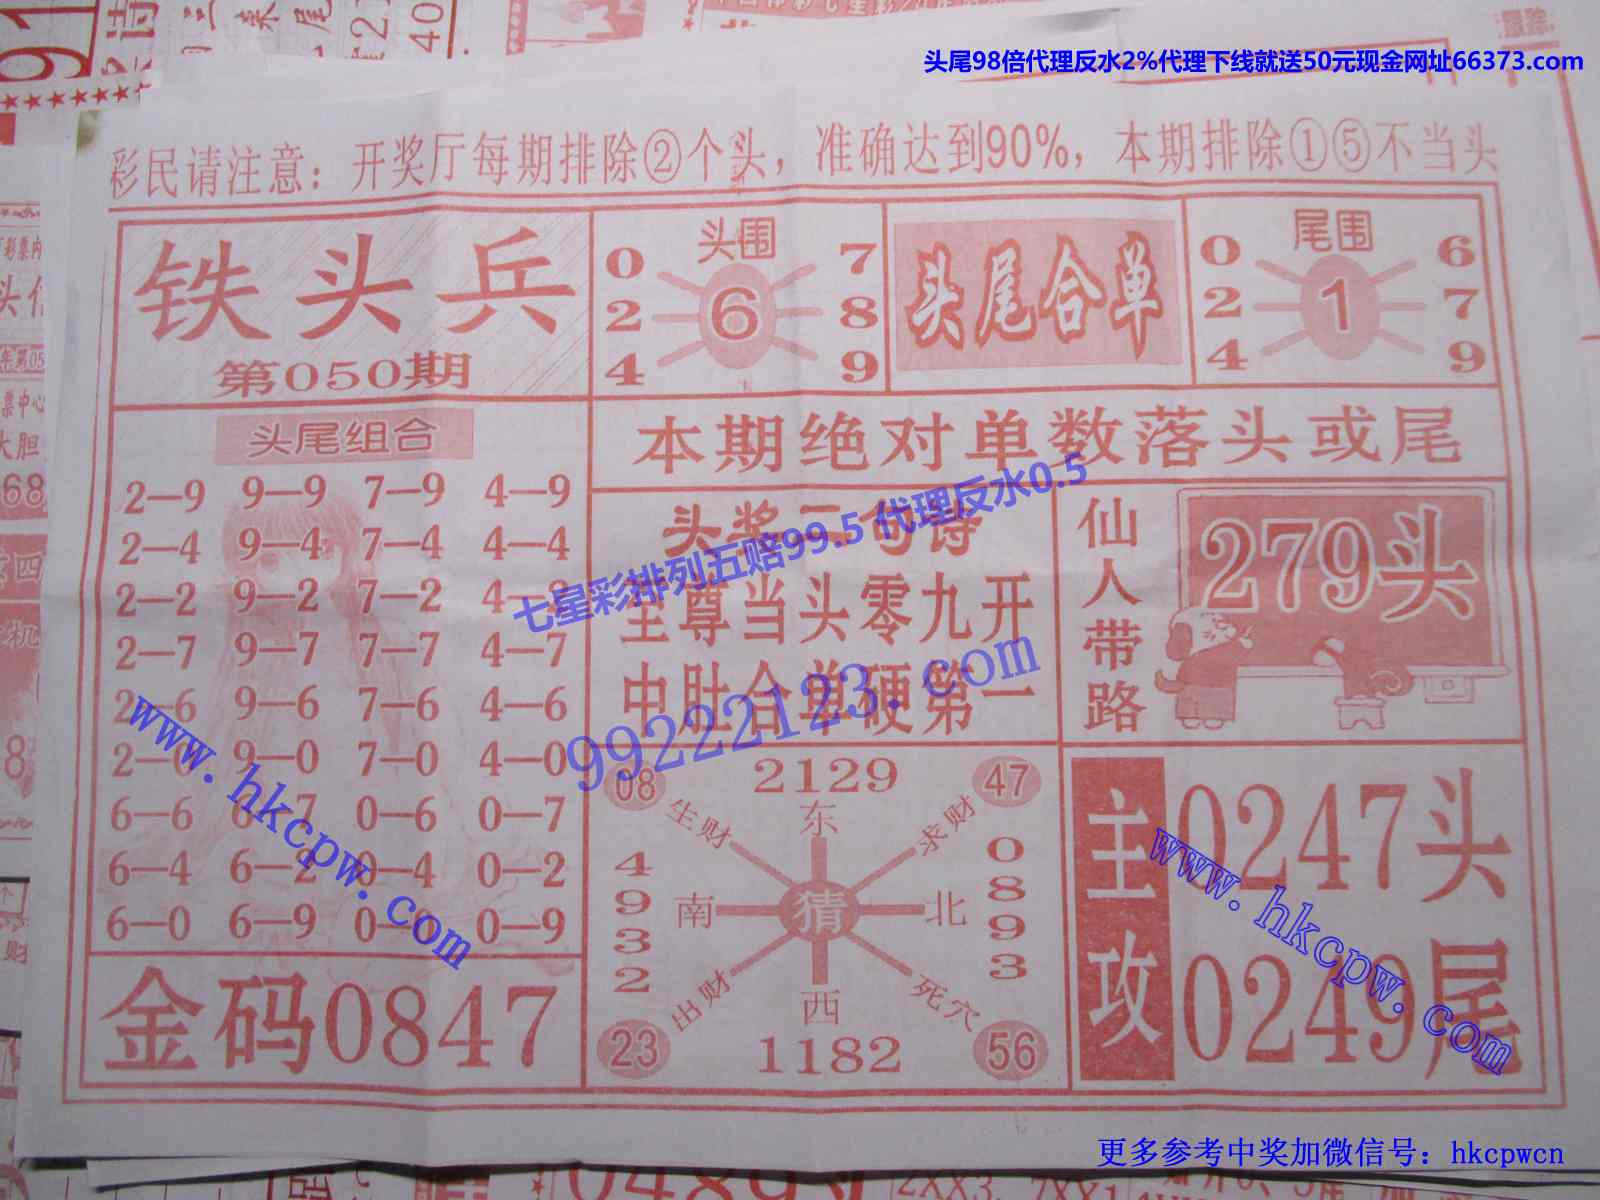 头尾98倍代理反水2%代理下线就送50元现金网址66373.com
彩民请注意：开奖厅每期排除②个头，准确达到90%，本期排除①⑤不当头
铁头兵
第050期
头围
0 7
2 6 8
4 9
头尾合单
尾围
0 6
2 1 7
4 9
头尾组合
2—9 9—9 7—9 4—9
2—4 9—4 7—4 4—4
2—2 9—2 7—2
2—7 9—7 7—7 4—7
2—6 9—6 7—6 4—6
9—0 7—0 4—0
6—6 0—6 0—7
6—4 6—2 0—4 0—2
6—0 6—9 0—9
金码0847
本期绝对单数落头或尾
头奖二句诗
至尊当头零九开
中肚合单硬第一
七星彩排列五赔99.5 代理反水0.5
99222123.com
仙人带路
279头
08 2129 47
生财 东 求财
4932
南 猜 北
0893
出财 西 死穴
23 1182 56
主攻
0247头
0249尾
www.hkcpw.com
www.hkcpw.com
更多参考中奖加微信号：hkcpwcn